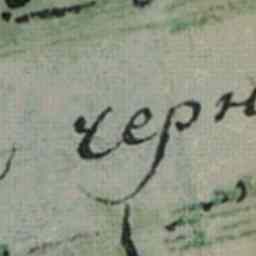 черн